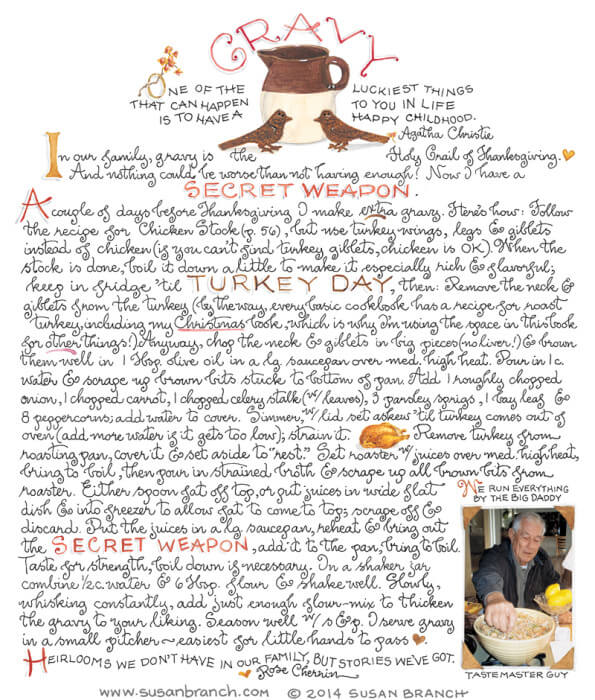 GRAVY
ONE OF THE LUCKIEST THINGS
THAT CAN HAPPEN TO YOU IN LIFE
IS TO HAVE A HAPPY CHILDHOOD.
Agatha Christie
In our family, gravy is the Holy Grail of Thanksgiving.
And nothing could be worse than not having enough! Now I have a
SECRET WEAPON.
A couple of days before Thanksgiving I make extra gravy. Here's how: Follow
the recipe for Chicken Stock (p. 56), but use turkey wings, legs & giblets
instead of chicken (if you can't find turkey giblets, chicken is OK). When the
stock is done, boil it down a little to make it especially rich & flavorful;
keep in fridge 'til TURKEY DAY, then: Remove the neck &
giblets from the turkey (by the way, every basic cookbook has a recipe for roast
turkey, including my Christmas book, which is why I'm using the space in this book
for other things!). Anyway, chop the neck & giblets in big pieces (no liver!) & brown
them well in 1 Tbsp. olive oil in a lg. saucepan over med. high heat. Pour in 1 c.
water & scrape up brown bits stuck to bottom of pan. Add 1 roughly chopped
onion, 1 chopped carrot, 1 chopped celery stalk (w/ leaves), 3 parsley sprigs, 1 bay leaf &
8 peppercorns; add water to cover. Simmer, w/ lid set askew 'til turkey comes out of
oven (add more water if it gets too low); strain it. Remove turkey from
roasting pan, cover it & set aside to "rest." Set roaster w/ juices over med. high heat,
bring to boil, then pour in strained broth & scrape up all brown bits from
roaster. Either spoon fat off top, or put juices in wide flat
dish & into freezer to allow fat to come to top; scrape off &
discard. Put the juices in a lg. saucepan, reheat & bring out
the SECRET WEAPON, add it to the pan, bring to boil.
Taste for strength, boil down if necessary. In a shaker jar
combine 1/2 c. water & 6 Tbsp. flour & shake well. Slowly,
whisking constantly, add just enough flour-mix to thicken
the gravy to your liking. Season well w/ s & p. I serve gravy
in a small pitcher ~ easiest for little hands to pass
WE RUN EVERYTHING
BY THE BIG DADDY
TASTEMASTER GUY
HEIRLOOMS WE DON'T HAVE IN OUR FAMILY, BUT STORIES WE'VE GOT.
Rose Cherrin
www.susanbranch.com © 2014 SUSAN BRANCH